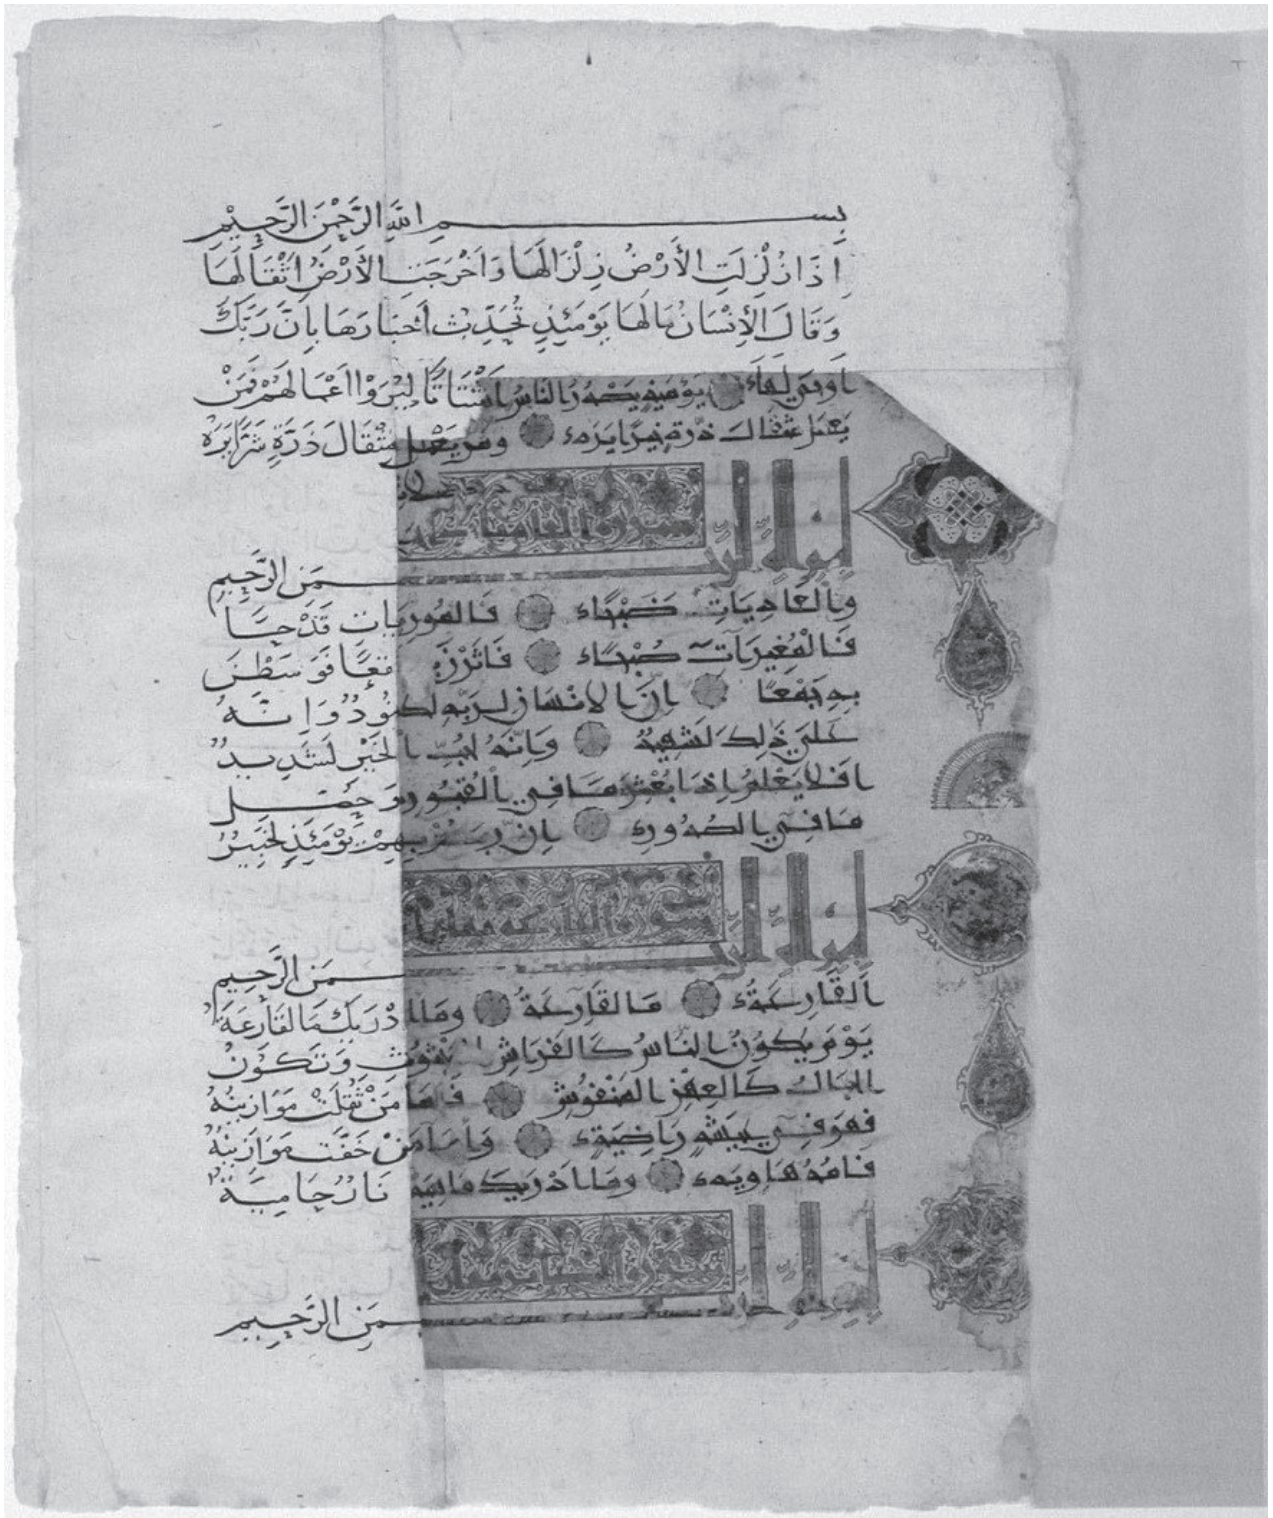 بســـم الله الرَّحْمَنِ الرَّحِيْمِ
اِذَا زُلْزِلَتِ الأَرْضُ زِلْزَالَهَا وَاَخْرَجَتِ الأَرْضُ اَثْقَالَهَا
وَقَالَ الأِنْسَانُ مَالَهَا يَوْمَئِذٍ تُحَدِّثُ اَخْبَارَهَا بِاَنَّ رَبَّكَ
اَوحَي لَهَا يَوْمَئِذٍ يَصْدُرُ النَّاسُ اَشْتَاتًا لِيُرَوْا اَعْمَالَهُمْ فَمَنْ
يَعْمَل مِثْقَالَ ذَرَّةٍ خَيْرًا يَرَهُ وَمَن يَعْمَل مِثْقَالَ ذَرَّةٍ شَرًّا يَرَهُ
سورة العاديات
بسم الله الرَّحْمَنِ الرَّحِيمِ
وَالْعَادِيَاتِ ضَبْحًا فَالمُورِيَاتِ قَدْحًا
فَالْمُغِيرَاتِ صُبْحًا فَاَثَرْنَ نَقْعًا فَوَسَطْنَ
بِهِ جَمْعًا اِنَّ الاِنْسَانَ لِرَبِّهِ لَكَنُودٌ وَاِنَّهُ
عَلَي ذَلِكَ لَشَهِيدٌ وَاِنَّهُ لِحُبِّ الْخَيْرِ لَشَدِيدٌ
اَفَلَا يَعْلَمُ اِذَا بُعْثِرَ مَا فِي الْقُبُورِ وَحُصِّلَ
مَا فِي الصُدُورِ اِنَّ رَبَّهُمْ بِهِمْ يَوْمَئِذٍ لَخَبِيرٌ
سورة القارعة
بسم الله الرَّحْمَنِ الرَّحِيمِ
اَلقَارِعَةُ مَا القَارِعَةُ وَمَا اَدْرَيكَ مَا القَارِعَةُ
يَوْمَ يَكُونُ النَّاسُ كَالفَرَاشِ المَبْثُوثِ وَتَكُونُ
الجِبَالُ كَالعِهْنِ المَنْفُوشِ فَاَمَّا مَنْ ثَقُلَتْ مَوَازِينُهُ
فَهُوَ فِي عِيشَةٍ رَاضِيَةٍ وَاَمَّا مَنْ خَفَّتْ مَوَازِينُهُ
فَاُمُّهُ هَاوِيَه وَمَا اَدْرَيكَ مَاهِيَهْ نَارٌ حَامِيَةٌ
بسم الله الرَّحْمَنِ الرَّحِيمِ